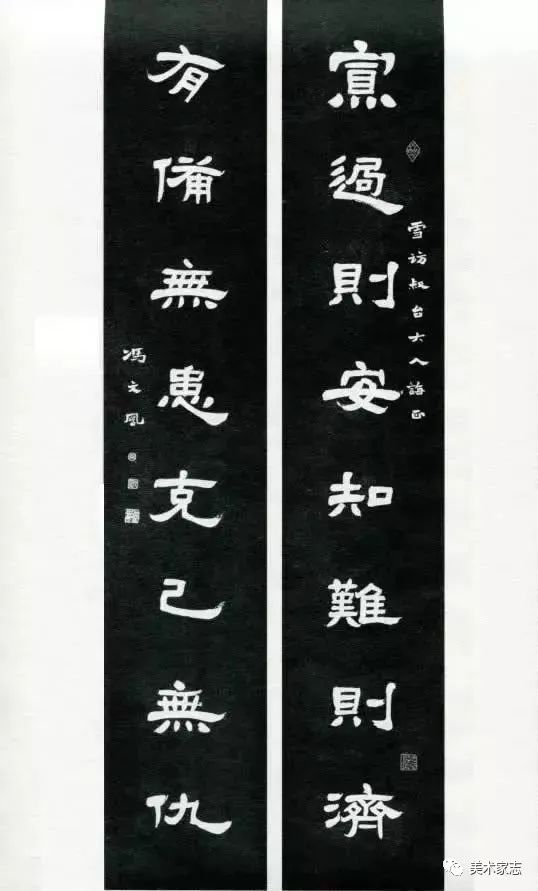 寡過則安知難則濟
雪访叔台大人誨正
有備無患克己無仇
馮文鳳
美术家志